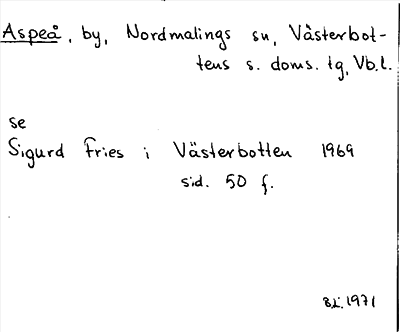 Aspeå, by, Nordmalings sn, Västerbot-
tens s. doms. tg, Vb.l.
se
Sigurd Fries i Västerbotten 1969
sid. 50 f.
1971